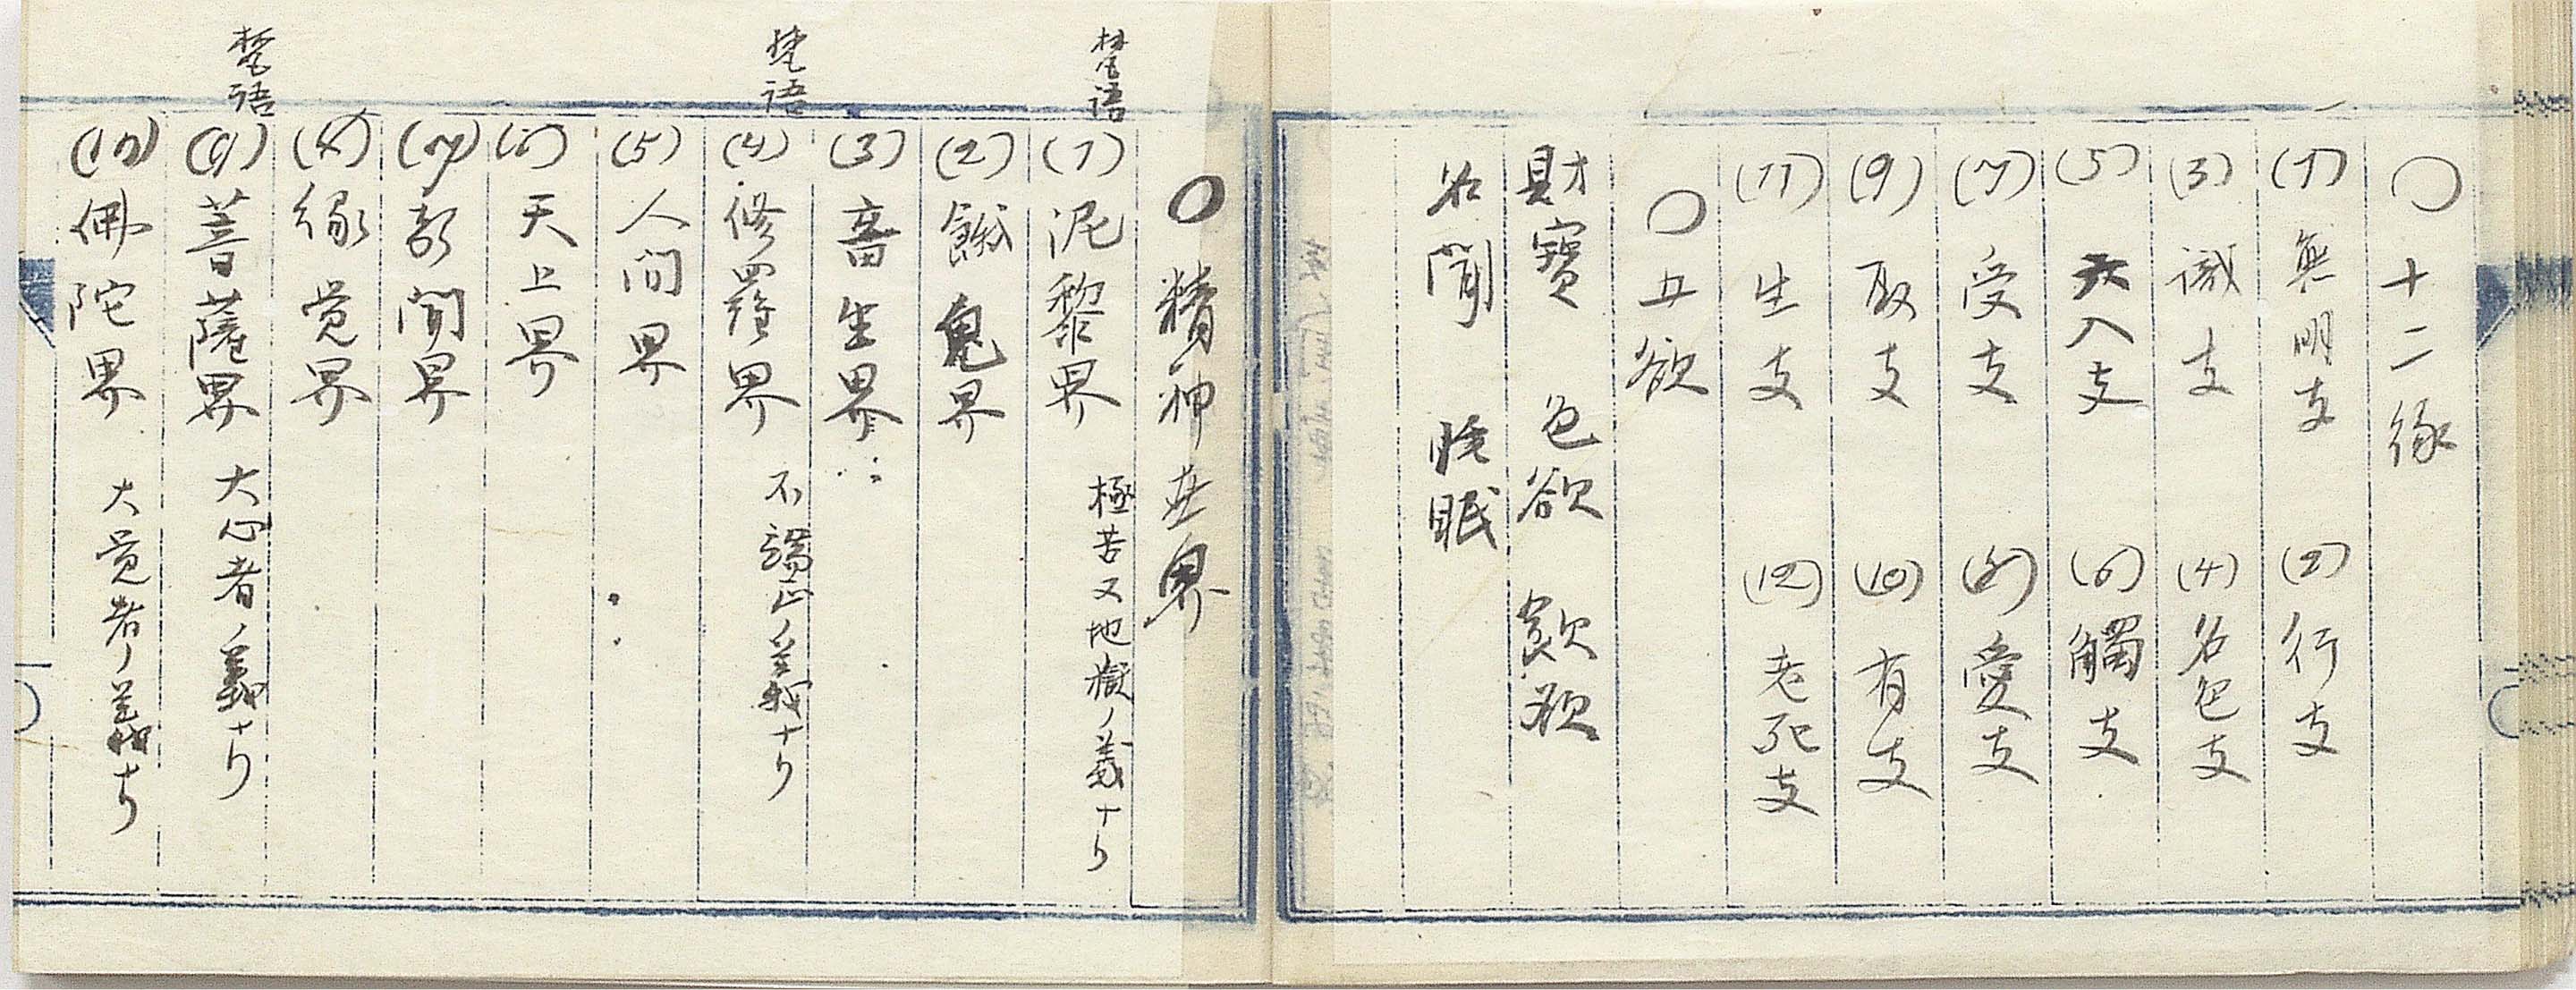 〇十二縁
(1) 無明支 (2) 行支
(3) 識支 (4) 名色支
(5) 六入支 (6) 觸支
(7) 受支 (8) 愛支
(9) 取支 (10) 有支
(11) 生支 (12) 老死支
〇五欲
財寶 色欲 飲欲
名聞 睡眠
〇精神世界
梵语 (1) 泥黎界 極苦又地獄ノ義ナリ
(2) 餓鬼界
(3) 畜生界
梵语 (4) 修羅界 不端正ノ義ナリ
(5) 人间界
(6) 天上界
(7) 声聞界
(8) 縁覚界
梵语 (9) 菩薩界 大心者ノ義ナリ
(10) 佛陀界 大覚者ノ義ナリ